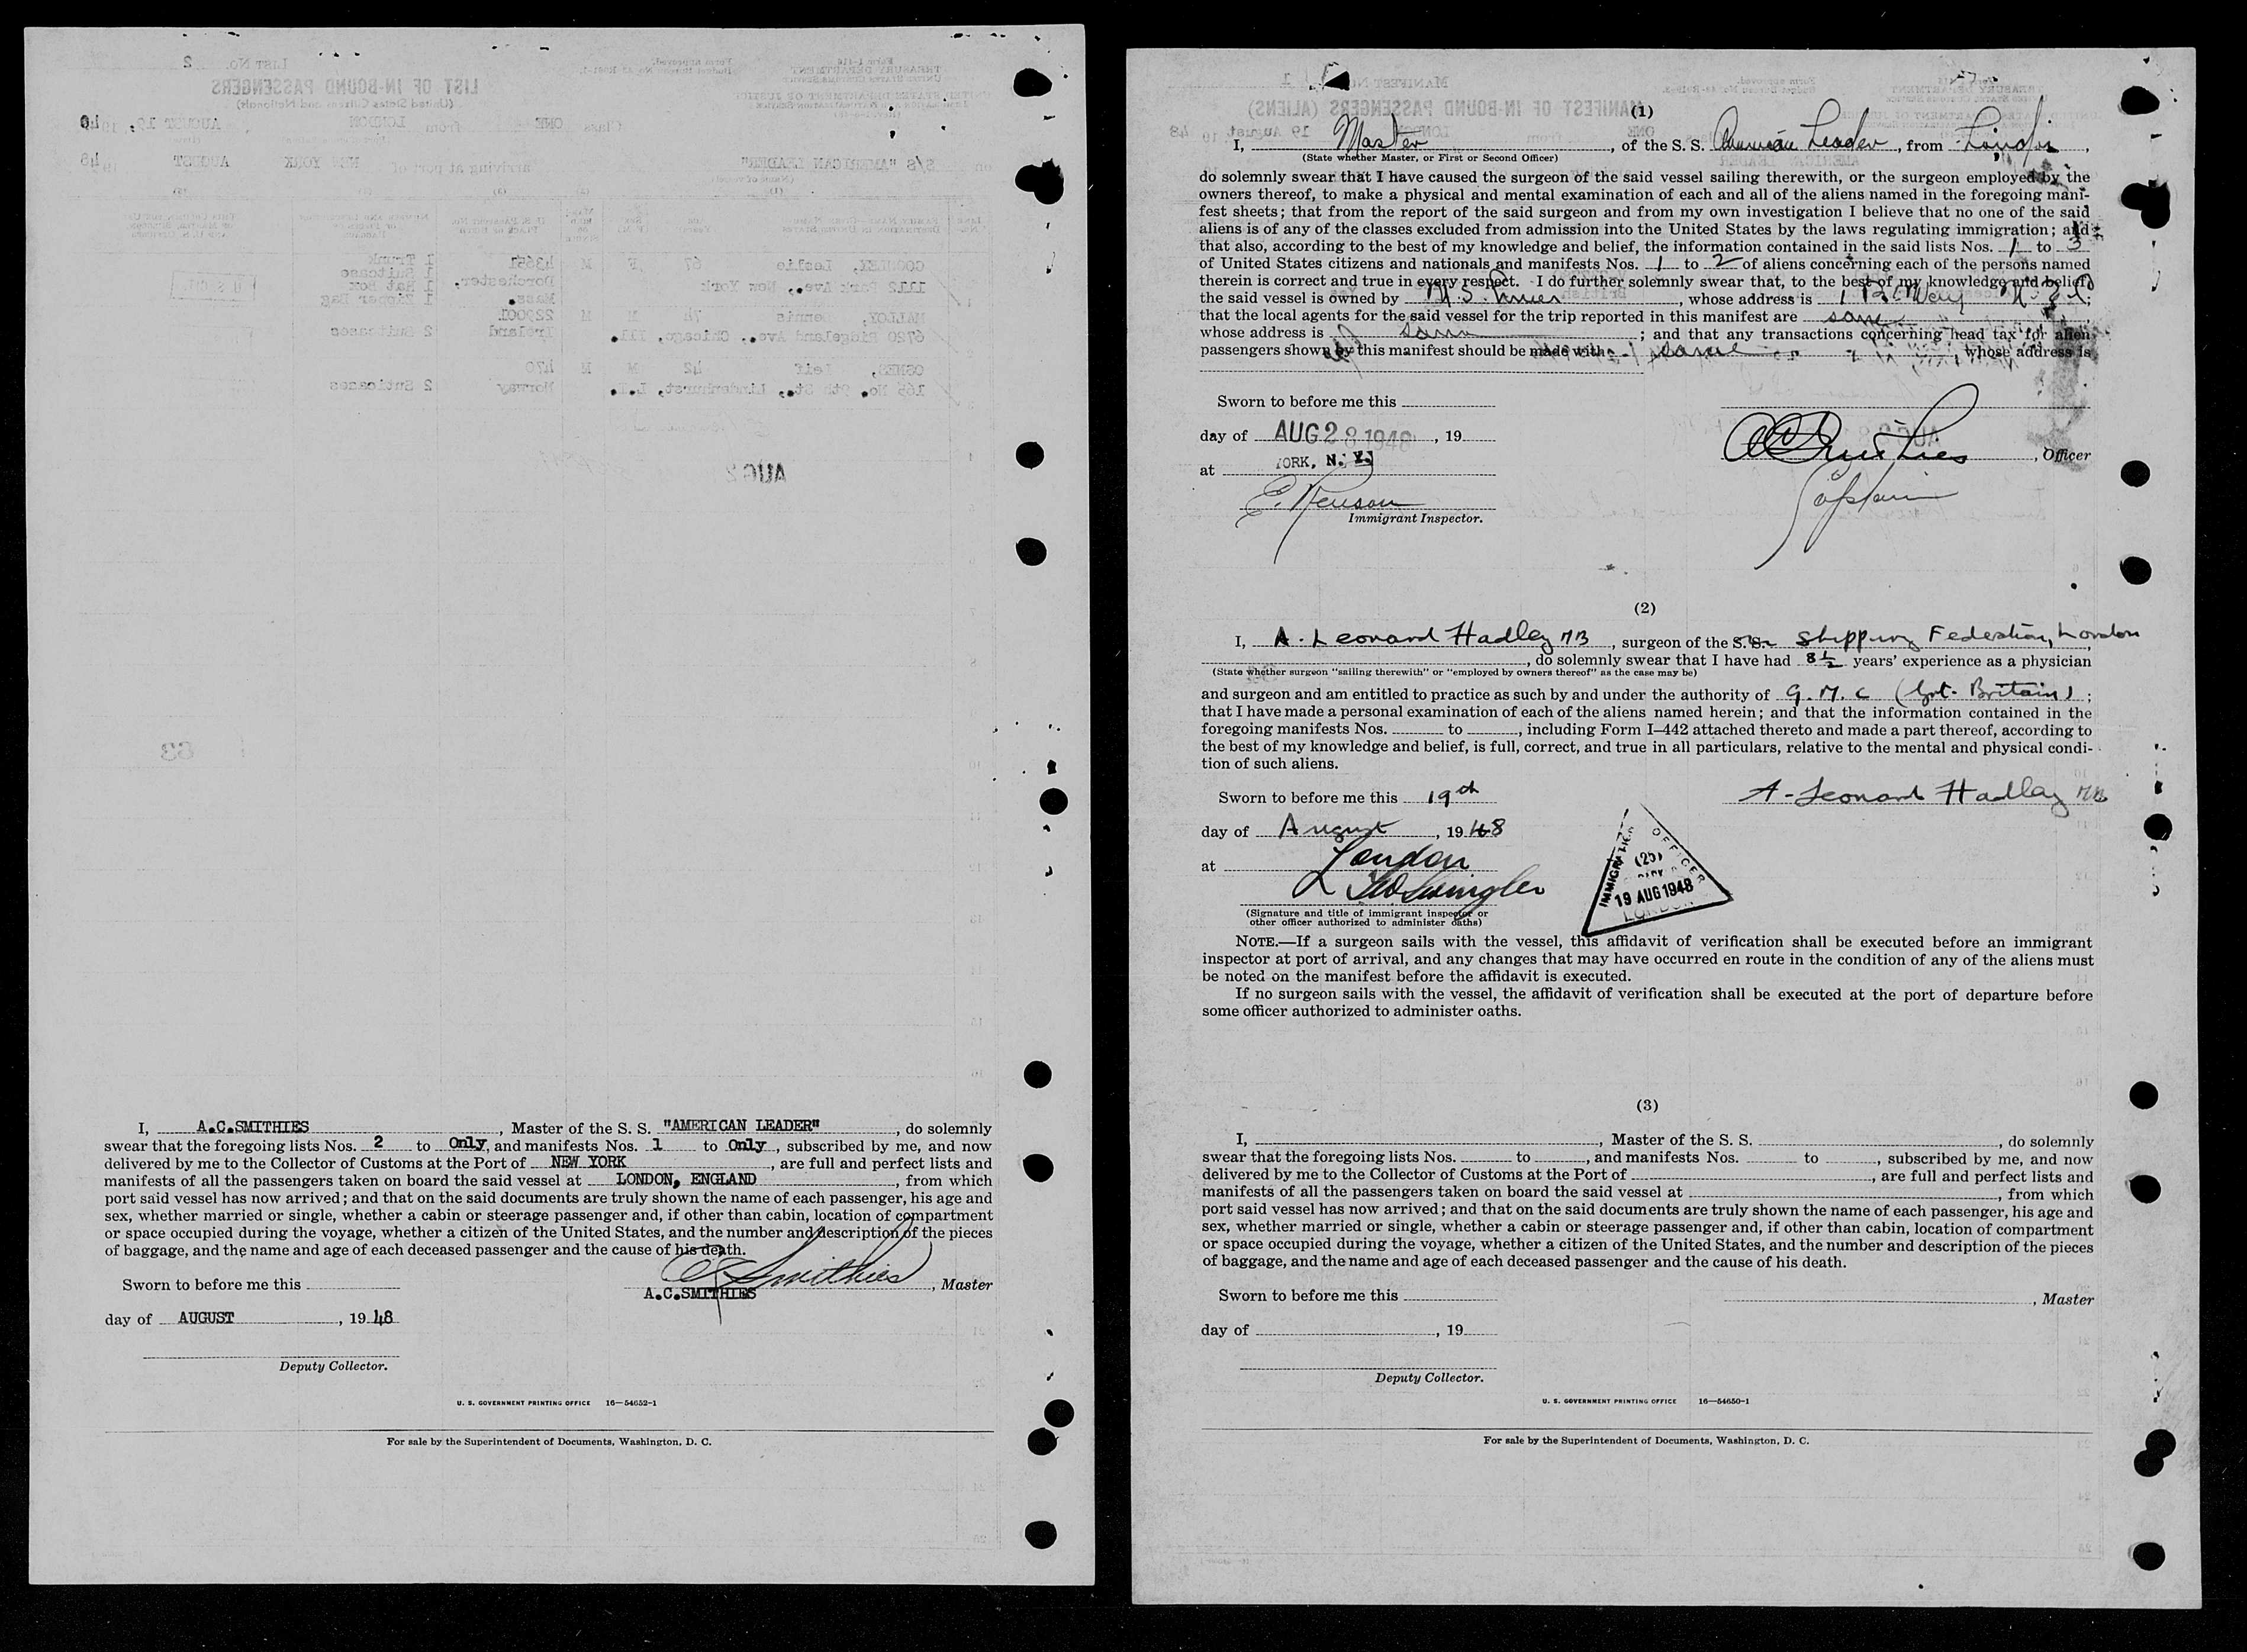 I, A.C.SMITHIES, Master of the S. S. "AMERICAN LEADER", do solemnly
swear that the foregoing lists Nos. 2 to Only, and manifests Nos. 1 to Only, subscribed by me, and now
delivered by me to the Collector of Customs at the Port of NEW YORK, are full and perfect lists and
manifests of all the passengers taken on board the said vessel at LONDON, ENGLAND, from which
port said vessel has now arrived; and that on the said documents are truly shown the name of each passenger, his age and
sex, whether married or single, whether a cabin or steerage passenger and, if other than cabin, location of compartment
or space occupied during the voyage, whether a citizen of the United States, and the number and description of the pieces
of baggage, and the name and age of each deceased passenger and the cause of his death.
Sworn to before me this
A.C.Smithies, Master
A.C.SMITHIES
day of AUGUST, 19 48
Deputy Collector.
U. S. GOVERNMENT PRINTING OFFICE 16—54652-1
For sale by the Superintendent of Documents, Washington, D. C.
(1)
I, Master, of the S. S. American Leader, from London,
(State whether Master, or First or Second Officer)
do solemnly swear that I have caused the surgeon of the said vessel sailing therewith, or the surgeon employed by the
owners thereof, to make a physical and mental examination of each and all of the aliens named in the foregoing mani-
fest sheets; that from the report of the said surgeon and from my own investigation I believe that no one of the said
aliens is of any of the classes excluded from admission into the United States by the laws regulating immigration; and
that also, according to the best of my knowledge and belief, the information contained in the said lists Nos. 1 to 3
of United States citizens and nationals and manifests Nos. 1 to 2 of aliens concerning each of the persons named
therein is correct and true in every respect. I do further solemnly swear that, to the best of my knowledge and belief,
the said vessel is owned by U.S. Lines, whose address is 1 B'Way N.Y.;
that the local agents for the said vessel for the trip reported in this manifest are same,
whose address is same; and that any transactions concerning head tax for alien
passengers shown by this manifest should be made with same, whose address is
Sworn to before me this
day of AUG 28 1948, 19
at YORK, N. Y.
A C Smithies, Officer
Captain
Immigrant Inspector.
(2)
I, A. Leonard Hadley MB, surgeon of the S. S. Shipping Federation, London
, do solemnly swear that I have had 8½ years' experience as a physician
(State whether surgeon "sailing therewith" or "employed by owners thereof" as the case may be)
and surgeon and am entitled to practice as such by and under the authority of G.M.C (Grt. Britain);
that I have made a personal examination of each of the aliens named herein; and that the information contained in the
foregoing manifests Nos. to , including Form I–442 attached thereto and made a part thereof, according to
the best of my knowledge and belief, is full, correct, and true in all particulars, relative to the mental and physical condi-
tion of such aliens.
Sworn to before me this 19th
A. Leonard Hadley MB
day of August, 19 48
at London
IMMIGRATION OFFICER
(25)
19 AUG 1948
LONDON
(Signature and title of immigrant inspector or
other officer authorized to administer oaths)
NOTE.—If a surgeon sails with the vessel, this affidavit of verification shall be executed before an immigrant
inspector at port of arrival, and any changes that may have occurred en route in the condition of any of the aliens must
be noted on the manifest before the affidavit is executed.
If no surgeon sails with the vessel, the affidavit of verification shall be executed at the port of departure before
some officer authorized to administer oaths.
(3)
I, , Master of the S. S. , do solemnly
swear that the foregoing lists Nos. to , and manifests Nos. to , subscribed by me, and now
delivered by me to the Collector of Customs at the Port of , are full and perfect lists and
manifests of all the passengers taken on board the said vessel at , from which
port said vessel has now arrived; and that on the said documents are truly shown the name of each passenger, his age and
sex, whether married or single, whether a cabin or steerage passenger and, if other than cabin, location of compartment
or space occupied during the voyage, whether a citizen of the United States, and the number and description of the pieces
of baggage, and the name and age of each deceased passenger and the cause of his death.
Sworn to before me this
, Master
day of , 19
Deputy Collector.
U. S. GOVERNMENT PRINTING OFFICE 16—54650-1
For sale by the Superintendent of Documents, Washington, D. C.